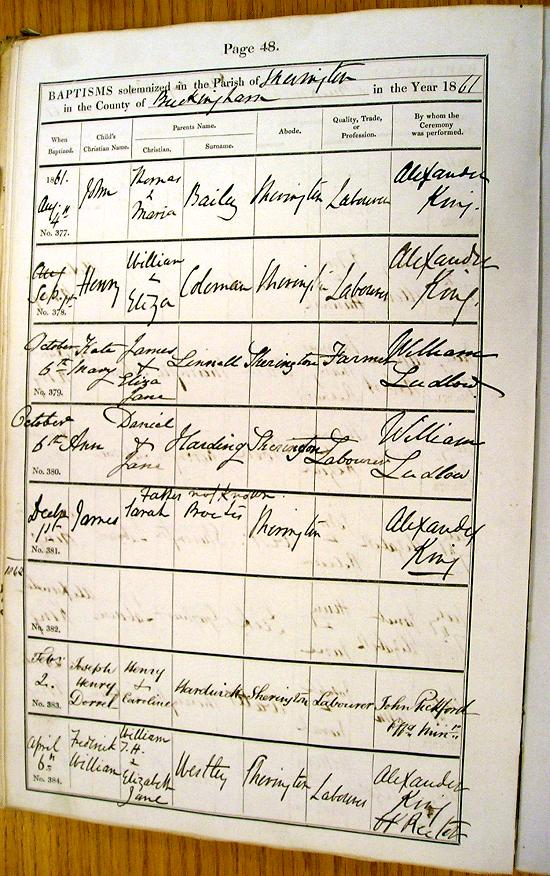 Page 48.
BAPTISMS solemnized in the Parish of Sherington
in the County of Buckingham in the Year 1861
When Baptized.
Child's Christian Name.
Parents Name.
Christian.
Surname.
Abode.
Quality, Trade, or Profession.
By whom the Ceremony was performed.
1861.
Aug 4th
No. 377.
John
Thomas & Maria
Bailey
Sherington
Labourer
Alexander King.
Aug
Sep. 1st
No. 378.
Henry
William & Eliza
Coleman
Sherington
Labourer
Alexander King.
October 6th
No. 379.
Kate Mary
James & Eliza Jane
Linnell
Sherington
Farmer
William Ludlow
October 6th
No. 380.
Ann
Daniel & Jane
Harding
Sherington
Labourer
William Ludlow
Decbr 1st
No. 381.
James
Father not known.
Sarah
Sherington
Alexander King
1862
No. 382.
Feby 2.
No. 383.
Joseph Henry
Henry & Caroline
Hardwick
Sherington
Labourer
John Pickford
Offg Minr
April 6th
No. 384.
Frederick William
William T. H. & Elizabeth Jane
Westley
Sherington
Labourer
Alexander King
Rector